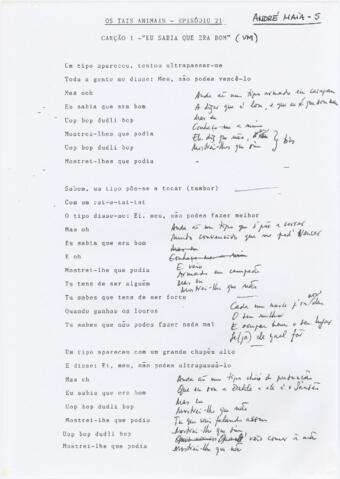 OS TAIS ANIMAIS - EPISÓDIO 21
ANDRÉ MAIA - 5
CANÇÃO 1 -"EU SABIA QUE ERA BOM" (VM)
Um tipo apareceu, tentou ultrapassar-me
Toda a gente me disse: Meu, não podes vencê-lo
Mas oh
Eu sabia que era bom
Uop bop dudli bop
Mostrei-lhes que podia
Uop bop dudli bop
Mostrei-lhes que podia
Anda aí um tipo armado em
A dizer que é bom, e que eu
Mas eu
Conheço-me a mim
Ele diz que não,
Mostrei-lhes que sim
bis
Sabem, um tipo pôs-se a tocar (tambor)
Com um rat-a-tat-tat
O tipo disse-me: Ei, meu, não podes fazer melhor
Mas oh
Eu sabia que era bom
E oh
Mostrei-lhe que podia
Tu tens de ser alguém
Tu sabes que tens de ser forte
Quando ganhas os louros
Tu sabes que não podes fazer nada mal
Anda aí um tipo que s'pôs a correr
Muito convencido que me
Mas eu
Conheço-me a mim
E veio
Armado em campeão
Mas eu
Mostrei-lhe que não
Cada um nasce p'ra ser
O seu melhor
E ocupar bem o seu lugar
Se(ja) ele qual for
Um tipo apareceu com um grande chapéu alto
E disse: Ei, meu, não podes ultrapassá-lo
Mas oh
Eu sabia que era bom
Uop bop dudli bop
Mostrei-lhe que podia
Uop bop dudli bop
Mostrei-lhe que podia
Anda aí um tipo cheio de
Que eu sou a Dalila e ele é o Sansão
Mas eu
Mostrei-lhe que não
Tu que vens falando assim
Mostrei-lhe que sim
vais comer à mão
Mostrei-lhe que não